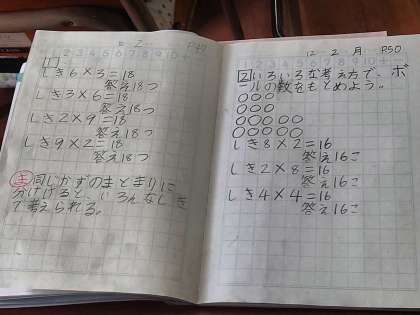 12 2 P49
1
しき6×3=18
答え18つ
しき3×6=18
答え18つ
しき2×9=18
答え18つ
しき9×2=18
答え18つ
ま 同じかずのまとまりに
分けけると、いろんなしき
で考えられる。
12 2 月 P50
2 いろいろな考え方で、ボ
ールの数をもとめよう。
しき8×2=16
答え16こ
しき2×8=16
答え16こ
しき4×4=16
答え16こ